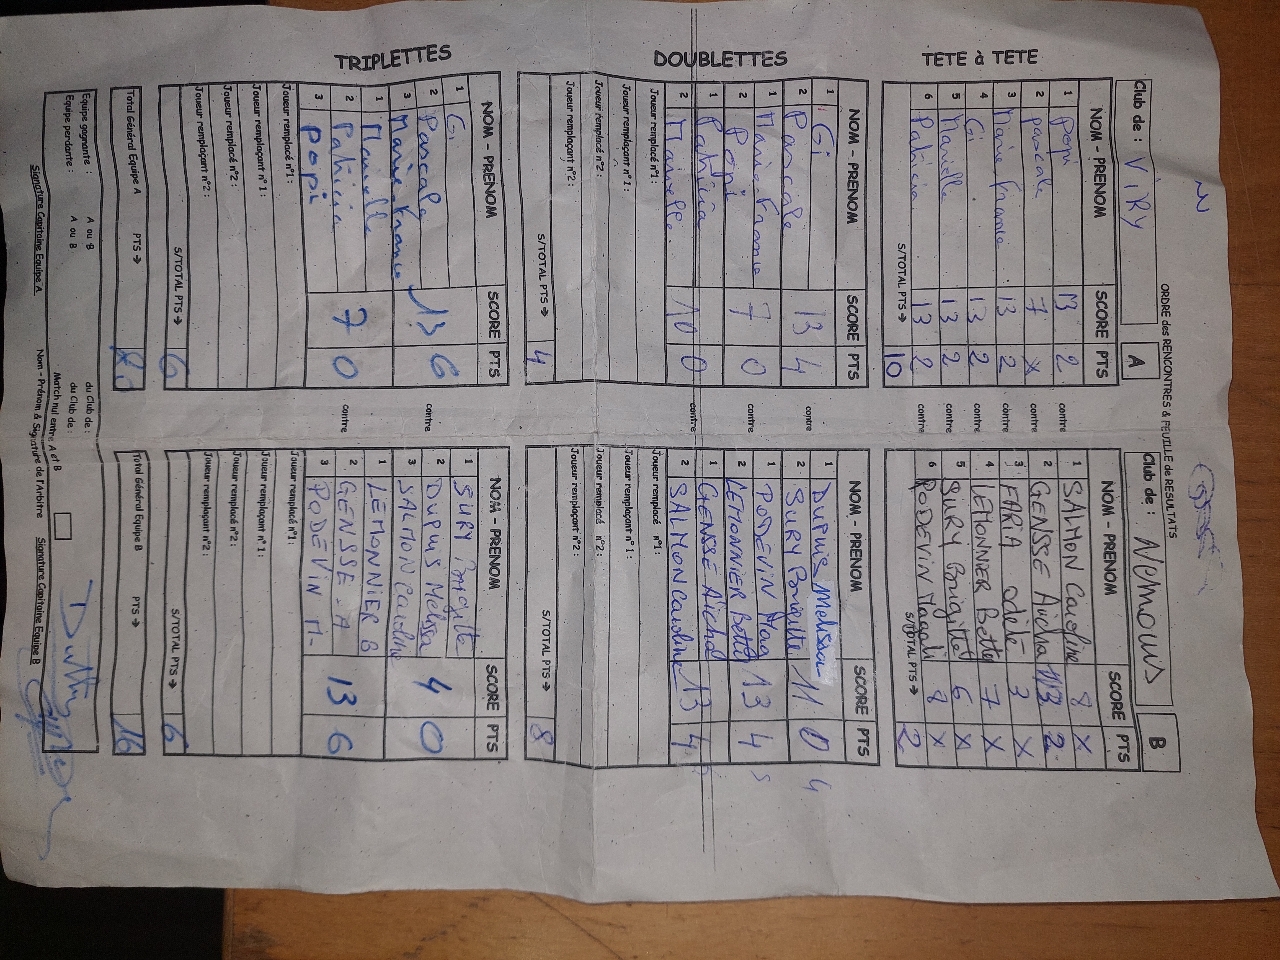 ORDRE des RENCONTRES & FEUILLE de RESULTATS
Club de : ViRY A
Club de : Nemours B
TETE à TETE
NOM - PRENOM SCORE PTS
1 Popi 13 2
2 pascale 7 X
3 Marie france 13 2
4 Gi 13 2
5 Marielle 13 2
6 Patricia 13 2
S/TOTAL PTS → 10
contre
contre
contre
contre
contre
contre
NOM - PRENOM SCORE PTS
1 SALMON Caroline 8 X
2 GENSSE Aicha 13 2
3 FARA odèle 3 X
4 LEMONNIER Bette 7 X
5 SURY Brigitte 6 X
6 PODEVIN Magali 8 X
S/TOTAL PTS → 2
DOUBLETTES
NOM - PRENOM SCORE PTS
1 Gi
2 Pascale 13 4
1 Marie france
2 Popi 7 0
1 Patricia
2 Marielle 10 0
Joueur remplacé n°1 :
Joueur remplaçant n°1 :
Joueur remplacé n°2 :
Joueur remplaçant n°2 :
S/TOTAL PTS → 4
contre
contre
contre
NOM - PRENOM SCORE PTS
1 DUPUIS Melissa
2 SURY Brigitte 11 0
1 PODEVIN Mag
2 LEMONNIER Bette 13 4
1 GENSSE Aicha
2 SALMON Caroline 13 4
Joueur remplacé n°1 :
Joueur remplaçant n°1 :
Joueur remplacé n°2 :
Joueur remplaçant n°2 :
S/TOTAL PTS → 8
TRIPLETTES
NOM - PRENOM SCORE PTS
1 Gi
2 Pascale 13 6
3 Marie france
1 Marielle
2 Patricia 7 0
3 Popi
Joueur remplacé n°1 :
Joueur remplaçant n°1 :
Joueur remplacé n°2 :
Joueur remplaçant n°2 :
S/TOTAL PTS → 6
contre
contre
NOM - PRENOM SCORE PTS
1 SURY Brigitte
2 DUPUIS Melissa 4 0
3 SALMON Caroline
1 LEMONNIER B
2 GENSSE . A 13 6
3 PODEVIN M-
Joueur remplacé n°1 :
Joueur remplaçant n°1 :
Joueur remplacé n°2 :
Joueur remplaçant n°2 :
S/TOTAL PTS → 6
Total Général Equipe A PTS → 20
Total Général Equipe B PTS → 16
Equipe gagnante : A ou B du Club de :
Equipe perdante : A ou B du Club de :
Match nul entre A et B
Signature Capitaine Equipe A Nom - Prénom & Signature de l'Arbitre Signature Capitaine Equipe B